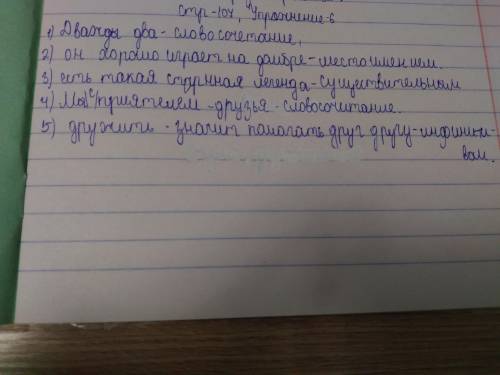 стр-104, Упражнение-6
1) Дважды два-словосочетание,
2) он хорошо играет на домбре-местоимением.
3) есть такая старинная легенда-существительным
4) Мы с приятелем-друзья-словосочитание.
5) дружить-значит помогать друг другу-инфинити-
вом.